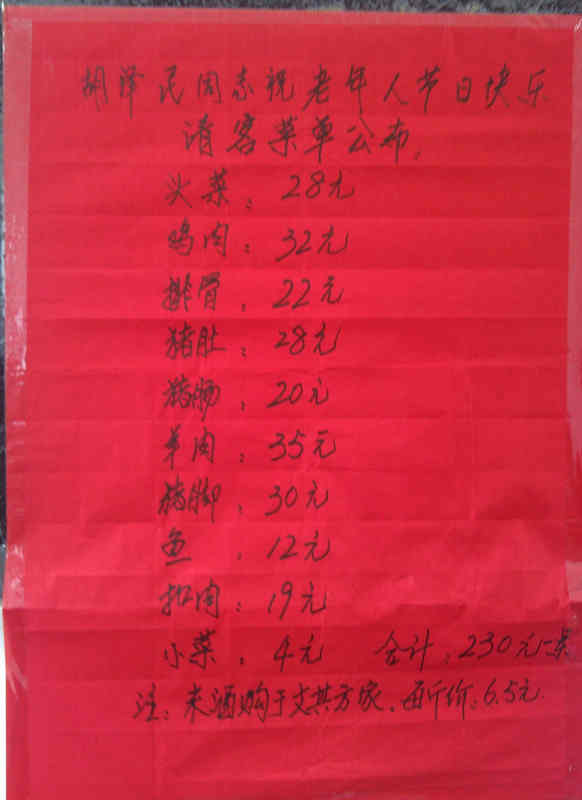 胡泽民同志祝老年人节日快乐
请客菜单公布。
头菜：28元
鸡肉：32元
排骨：22元
猪肚：28元
猪肠：20元
羊肉：35元
猪脚：30元
鱼：12元
扣肉：19元
小菜：4元 合计：230元一桌
注：米酒购于文其方家。每斤价：6.5元